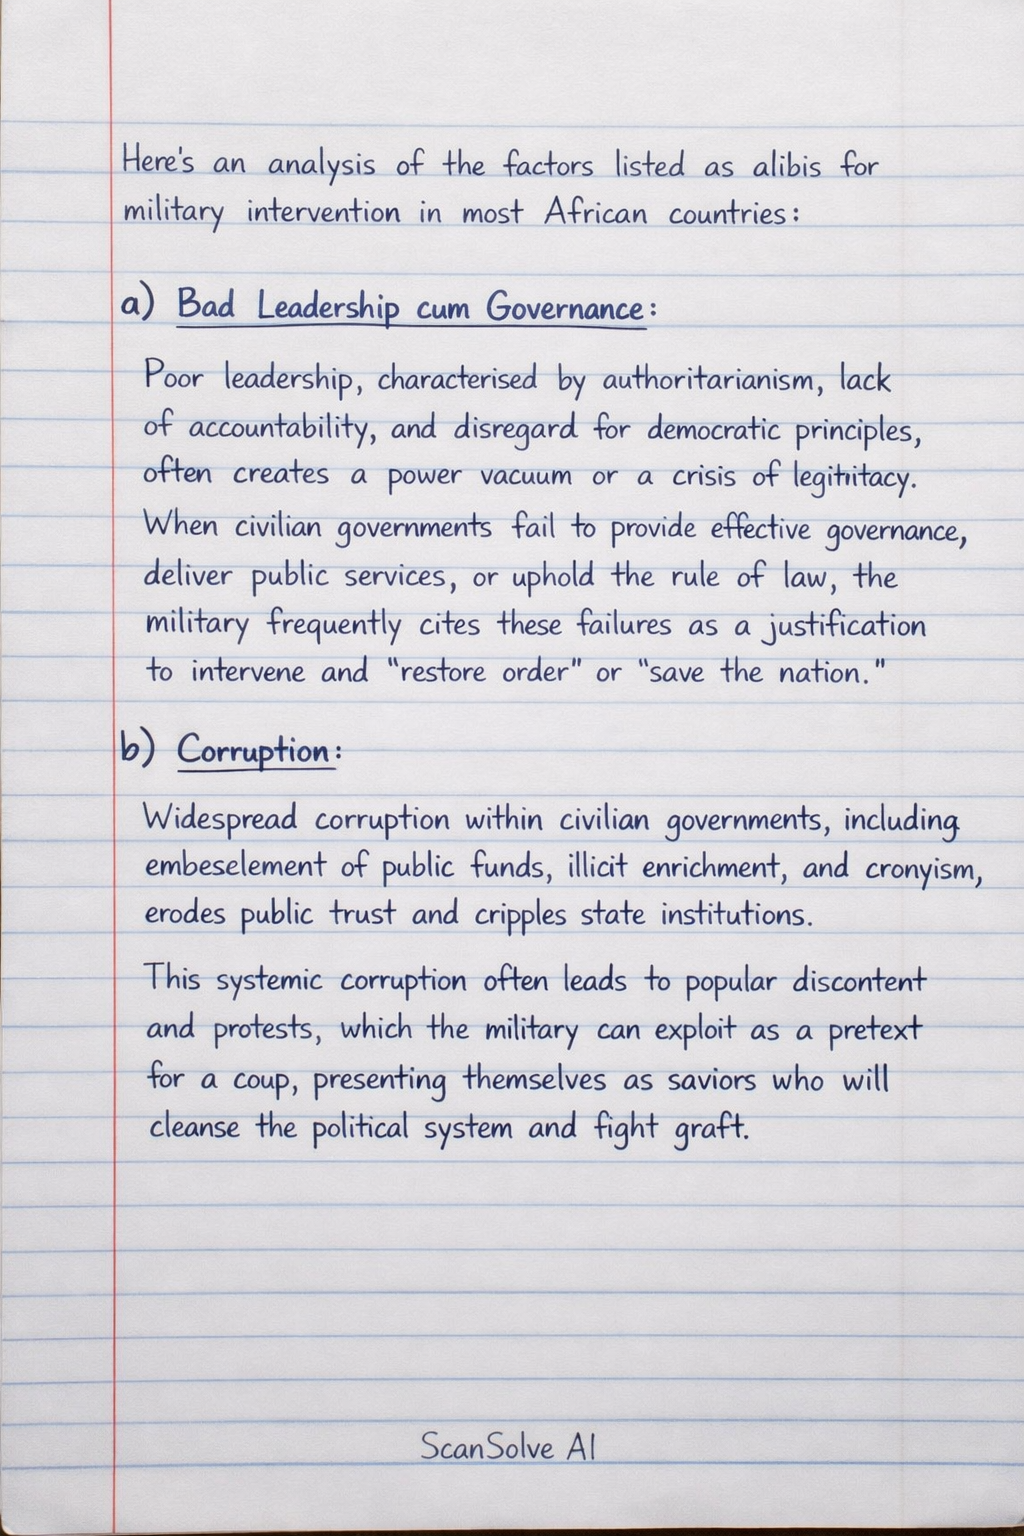 Here's an analysis of the factors listed as alibis for
military intervention in most African countries:
a) Bad Leadership cum Governance:
Poor leadership, characterised by authoritarianism, lack
of accountability, and disregard for democratic principles,
often creates a power vacuum or a crisis of legitititacy.
When civilian governments fail to provide effective governance,
deliver public services, or uphold the rule of law, the
military frequently cites these failures as a justification
to intervene and "restore order" or "save the nation."
b) Corruption:
Widespread corruption within civilian governments, including
embeselement of public funds, illicit enrichment, and cronyism,
erodes public trust and cripples state institutions.
This systemic corruption often leads to popular discontent
and protests, which the military can exploit as a pretext
for a coup, presenting themselves as saviors who will
cleanse the political system and fight graft.
ScanSolve AI